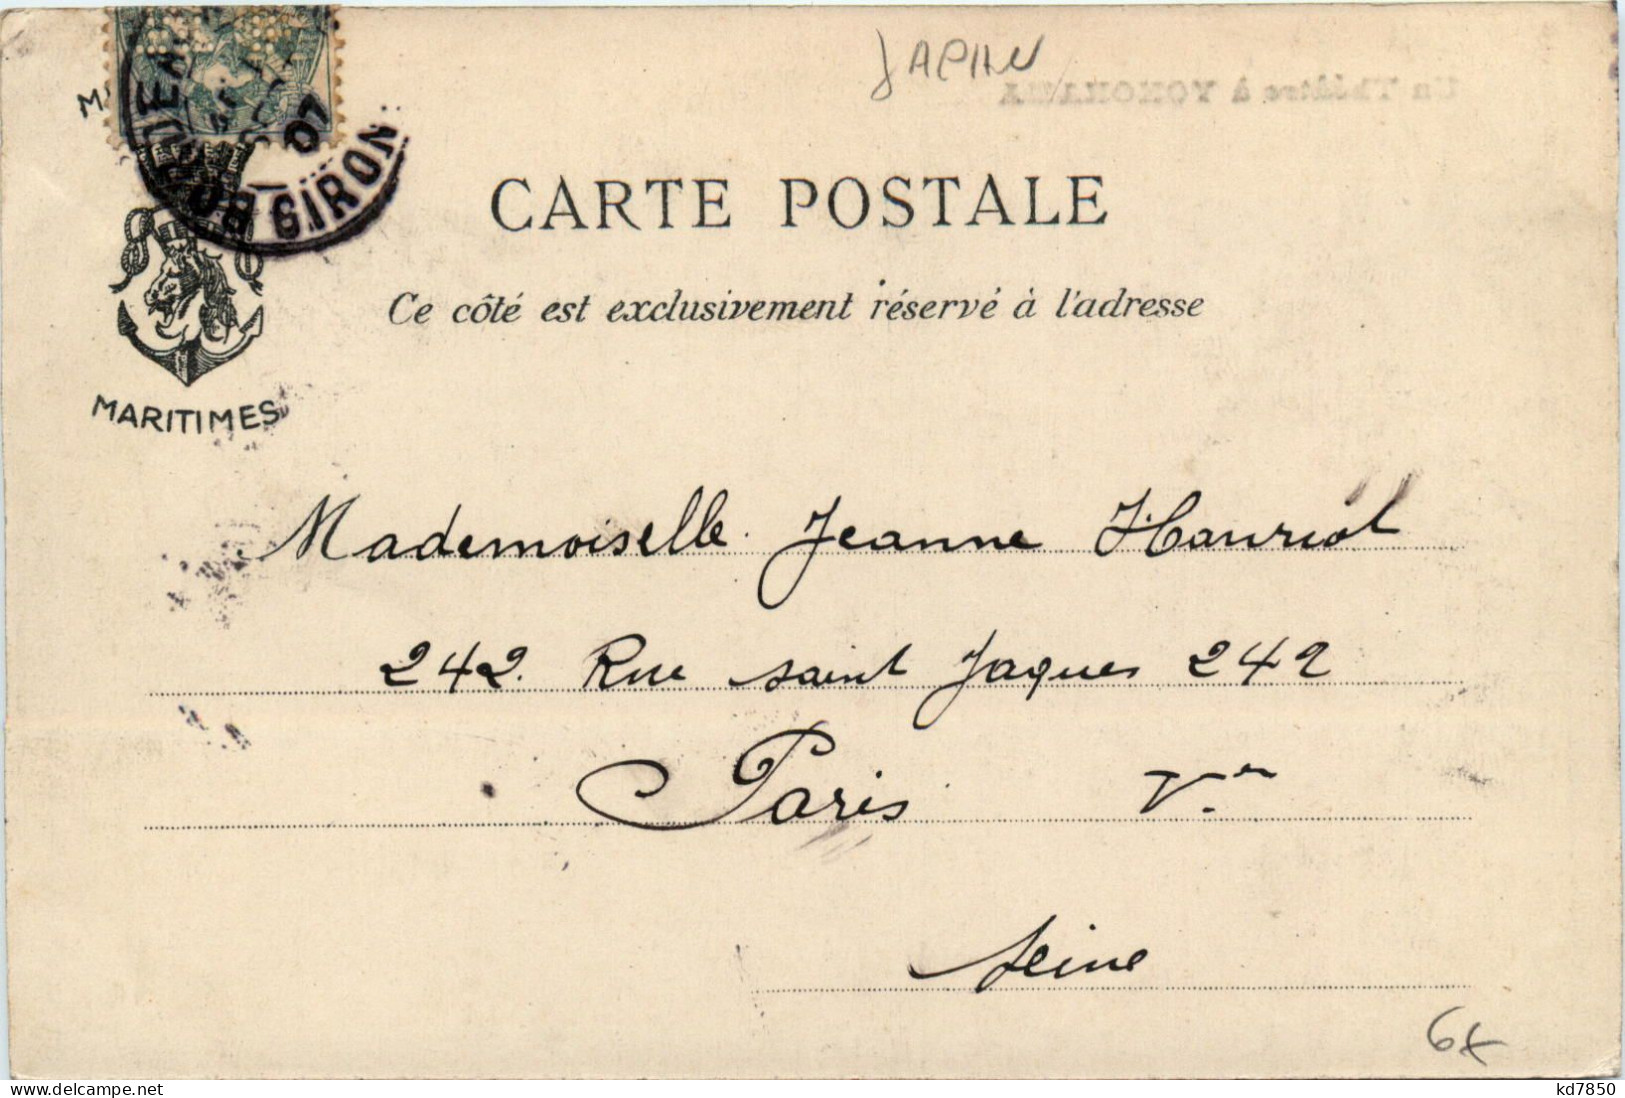 JAPAN
Un Théâtre à YOKOHAMA
BORDEAUX GIRONDE
07
CARTE POSTALE
Ce côté est exclusivement réservé à l'adresse
MARITIMES
Mademoiselle Jeanne Hauriot
242. Rue saint Jaques 242
Paris Ve
Seine
6€
www.delcampe.net
kd7850